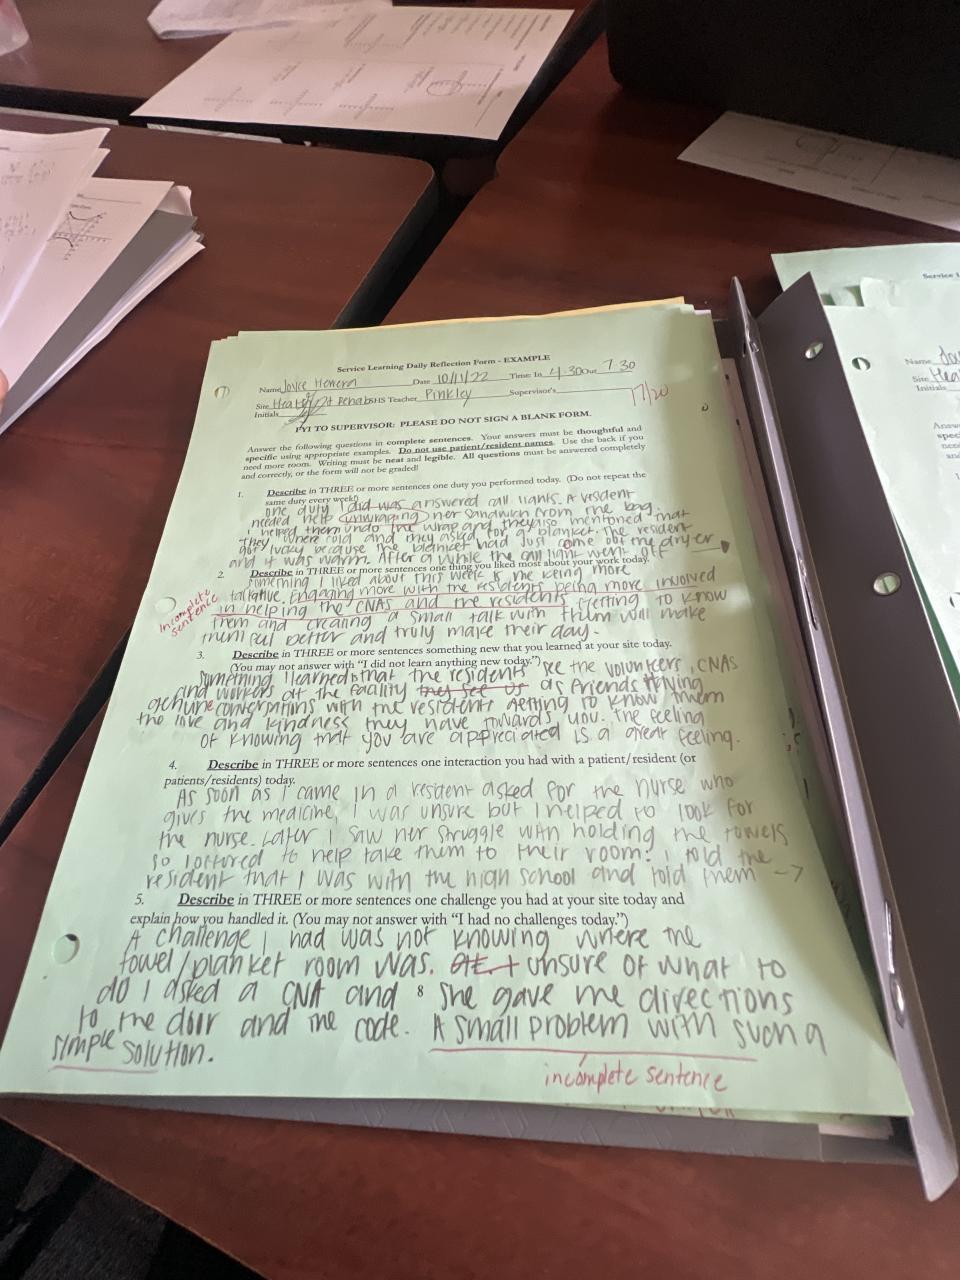 Service Learning Daily Reflection Form - EXAMPLE
Name Joyce Herrera Date 10/11/22 Time: In 4:30 Out 7:30
Site Rehab HS Teacher Pinkley Supervisor's
Initials 17/20
FYI TO SUPERVISOR: PLEASE DO NOT SIGN A BLANK FORM.
Answer the following questions in complete sentences. Your answers must be thoughtful and
specific using appropriate examples. Do not use patient/resident names. Use the back if you
need more room. Writing must be neat and legible. All questions must be answered completely
and correctly, or the form will not be graded!
1. Describe in THREE or more sentences one duty you performed today. (Do not repeat the
same duty every week!)
one duty I did was answered call lights. A resident
needed help unwraping her sandwich from the bag.
I helped them undo the wrap and they also mentioned that
they where cold and they asked for a blanket. The resident
got lucky because the blanket had just come out the dryer
and it was warm. After a while the call light went off
2. Describe in THREE or more sentences one thing you liked most about your work today.
something I liked about this week is me being more
talkative. Engaging more with the residents being more involved
in helping the CNAs and the residents. Getting to know
them and creating a small talk with them will make
them feel better and truly make their day.
Incomplete
sentence
3. Describe in THREE or more sentences something new that you learned at your site today.
(You may not answer with "I did not learn anything new today.")
something I learned is that the residents see the volunteers, CNAS
and workers at the facility they see us as friends. Having
genuine conversations with the residents getting to know them
the love and kindness they have towards you. The feeling
of knowing that you are appreciated is a great feeling.
4. Describe in THREE or more sentences one interaction you had with a patient/resident (or
patients/residents) today.
As soon as I came in a resident asked for the nurse who
gives the medicine, I was unsure but I helped to look for
the nurse. Later I saw her struggle with holding the towels
so I offered to help take them to their room. I told the
resident that I was with the high school and told them →
5. Describe in THREE or more sentences one challenge you had at your site today and
explain how you handled it. (You may not answer with "I had no challenges today.")
A challenge I had was not knowing where the
towel/blanket room was. unsure of what to
do I asked a CNA and she gave me directions
8
to the door and the code. A small problem with such a
simple solution.
incomplete sentence
Service L
Name
Site
Initials